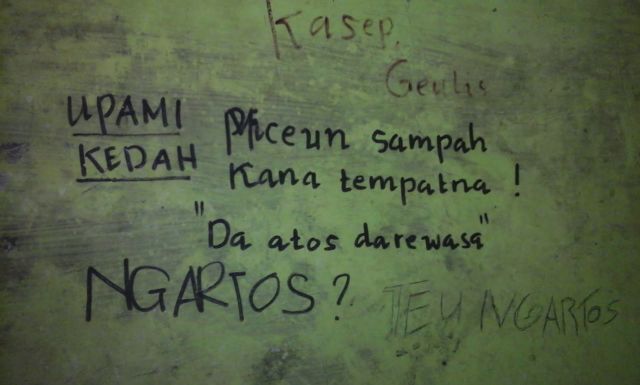 Kasep,
Geulis
UPAMI
KEDAH
Piceun sampah
Kana tempatna !
"Da atos darewasa"
NGARTOS?
TEU NGARTOS